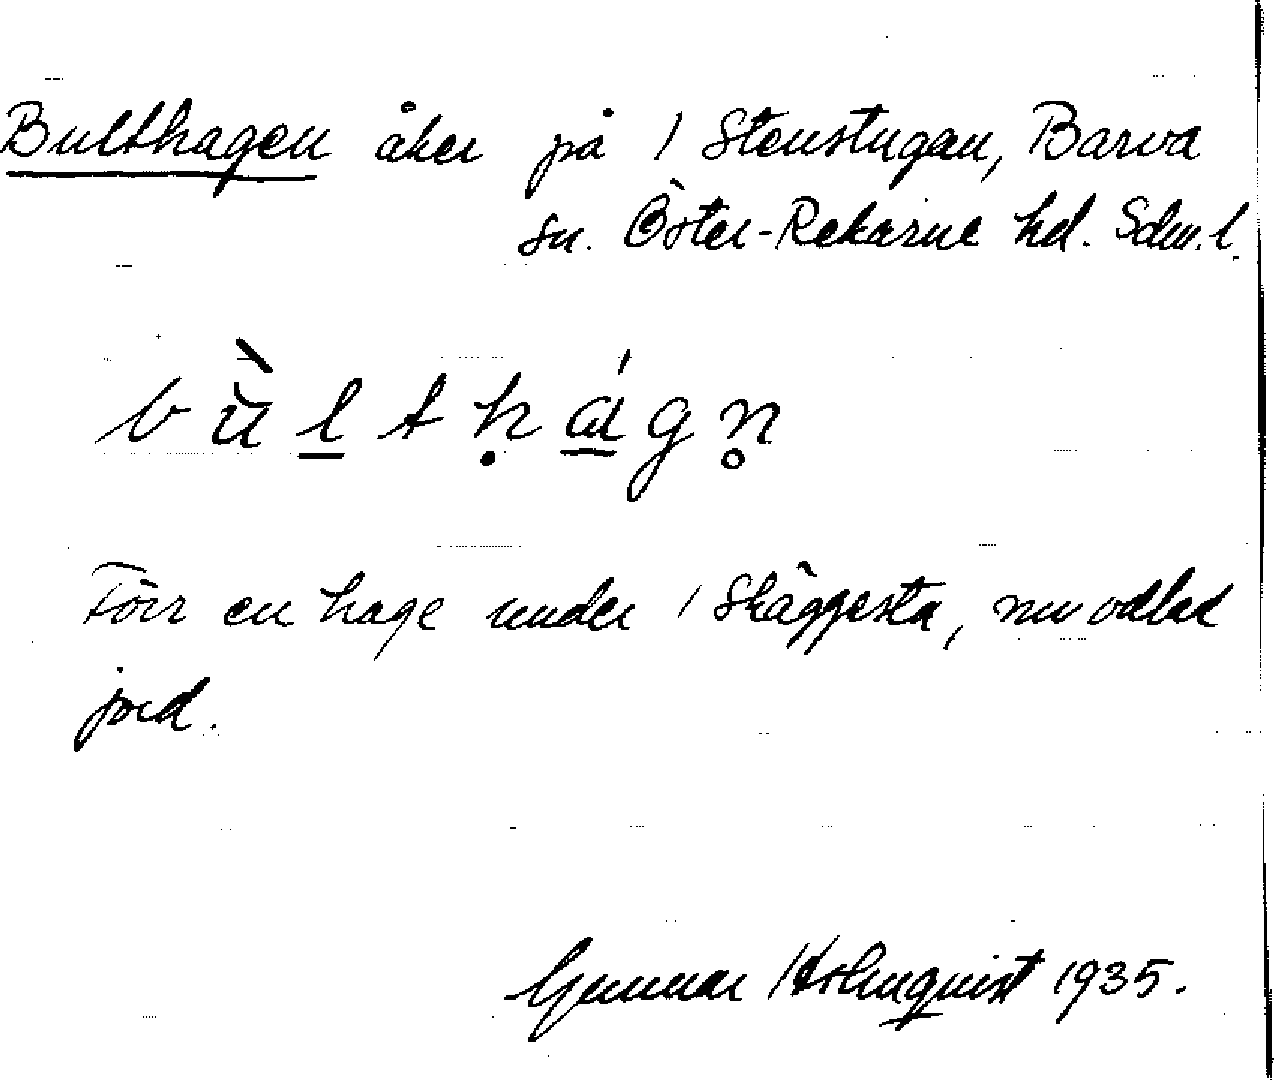 Bulthagen åker på / Stenstugan, Barva
sn. Öster-Rekarne hd. Sdm.l.
b ù l t ḥ á g n̥
Förr en hage under / Skäggesta, nu odlad
jord.
Gunnar Holmquist 1935.